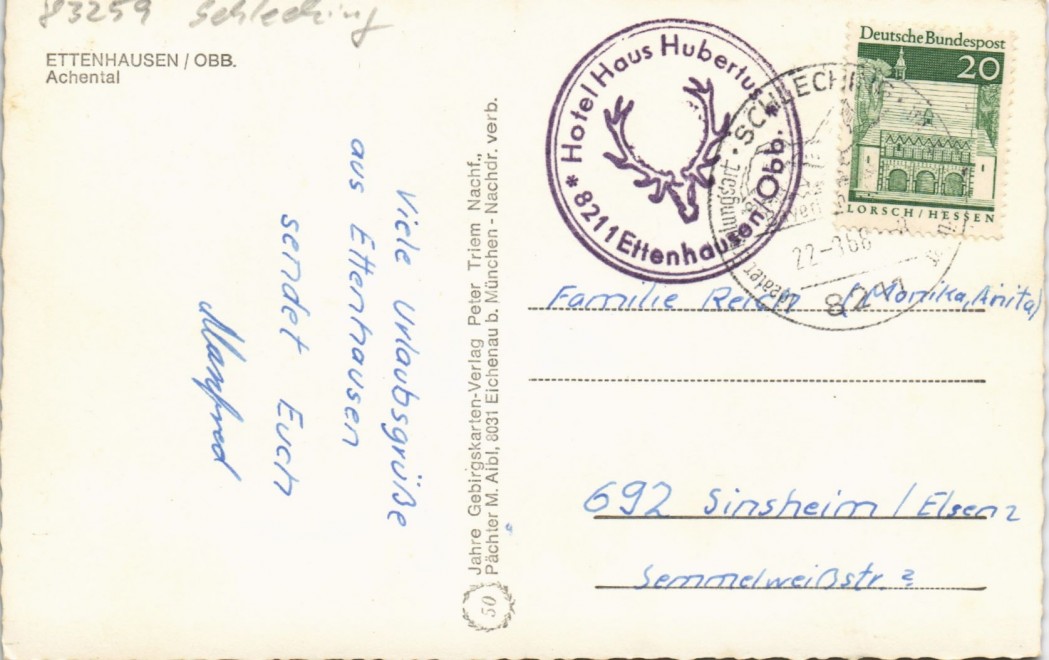 83259 Schleching
ETTENHAUSEN / OBB.
Achental
Viele Urlaubsgrüße
aus Ettenhausen
sendet Euch
Manfred
50 Jahre Gebirgskarten-Verlag Peter Triem Nachf.,
Pächter M. Aibl, 8031 Eichenau b. München - Nachdr. verb.
* Hotel Haus Hubertus *
8211 Ettenhausen/Obb.
Deutsche Bundespost
20
LORSCH/HESSEN
SCHLECHING
22-368
8211
Familie Reich (Monika, Anita)
692 Sinsheim / Elsenz
Semmelweißstr. 2